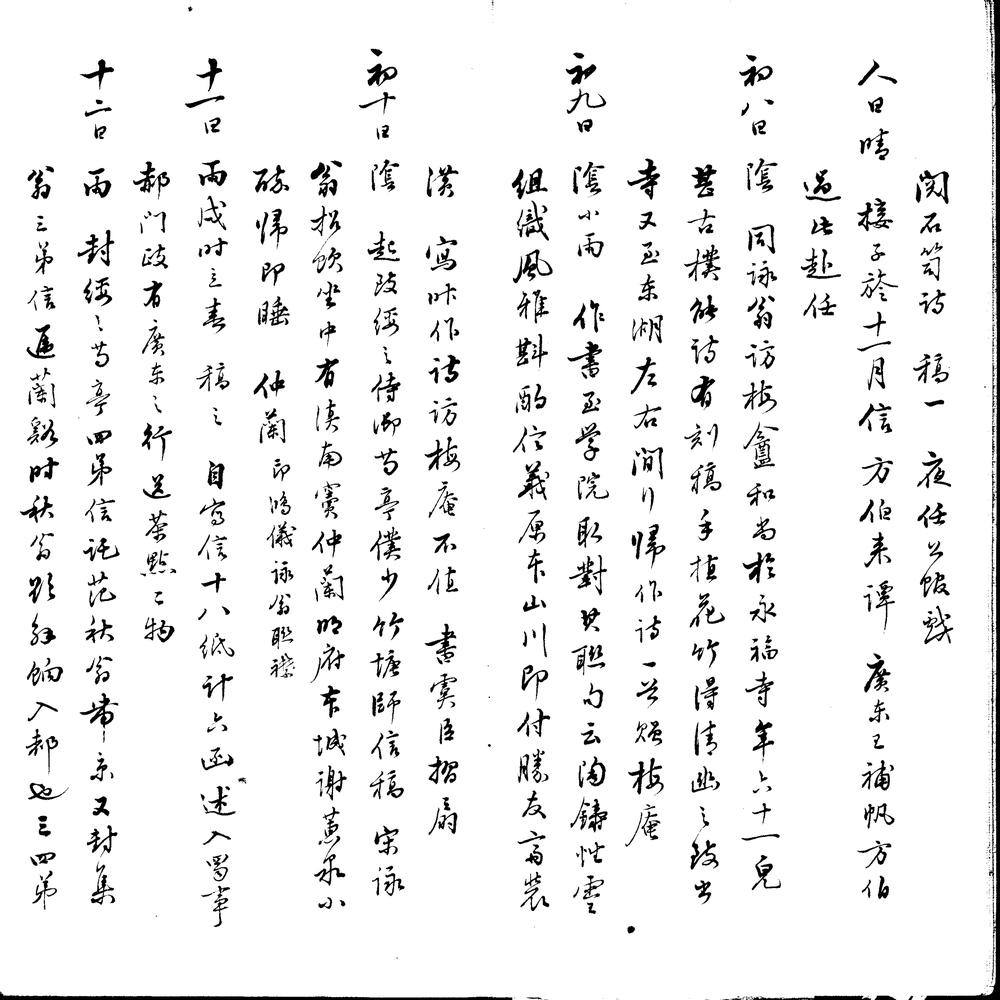 閱石笥詩 稿一 夜任公飯戲
人日晴 接子於十一月信 方伯来譚 廣东王補帆方伯
過此赴任
初八日 陰 同詠翁訪梅盦和尚於永福寺年六十一皃
甚古樸能詩有刻稿手植花竹得清幽之致出
寺又至东湖左右閒行歸作詩一首贈梅庵
初九日 陰小雨 作書至学院取對其聯句云陶鑄性靈
組織風雅斟酌信義原本山川即付勝友斋装
潢 寫昨作詩訪梅庵不值 書虞臣摺扇
初十日 陰 起致綏之侍御芍亭僕少竹塘師信稿 宋詠
翁招飲坐中有滇南竇仲蘭明府本城謝蕙泉小
酔歸即睡 仲蘭即鴻儀詠翁聯襟
十一日 雨戌时立春 稿之 自寫信十八纸计六函述入蜀事
郝门政有廣东之行送茶點二物
十二日 雨 封綏之芍亭四弟信託范秋翁带京又封集
翁三弟信過蘭谿时秋翁欵余餉入郝也三四弟